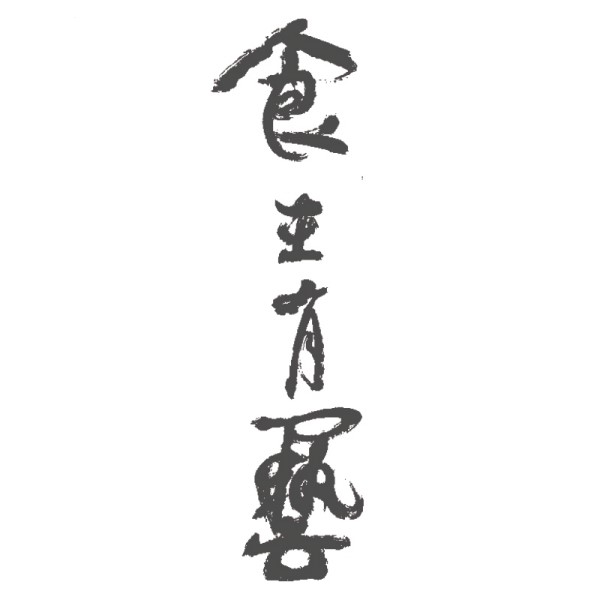 食在有藝